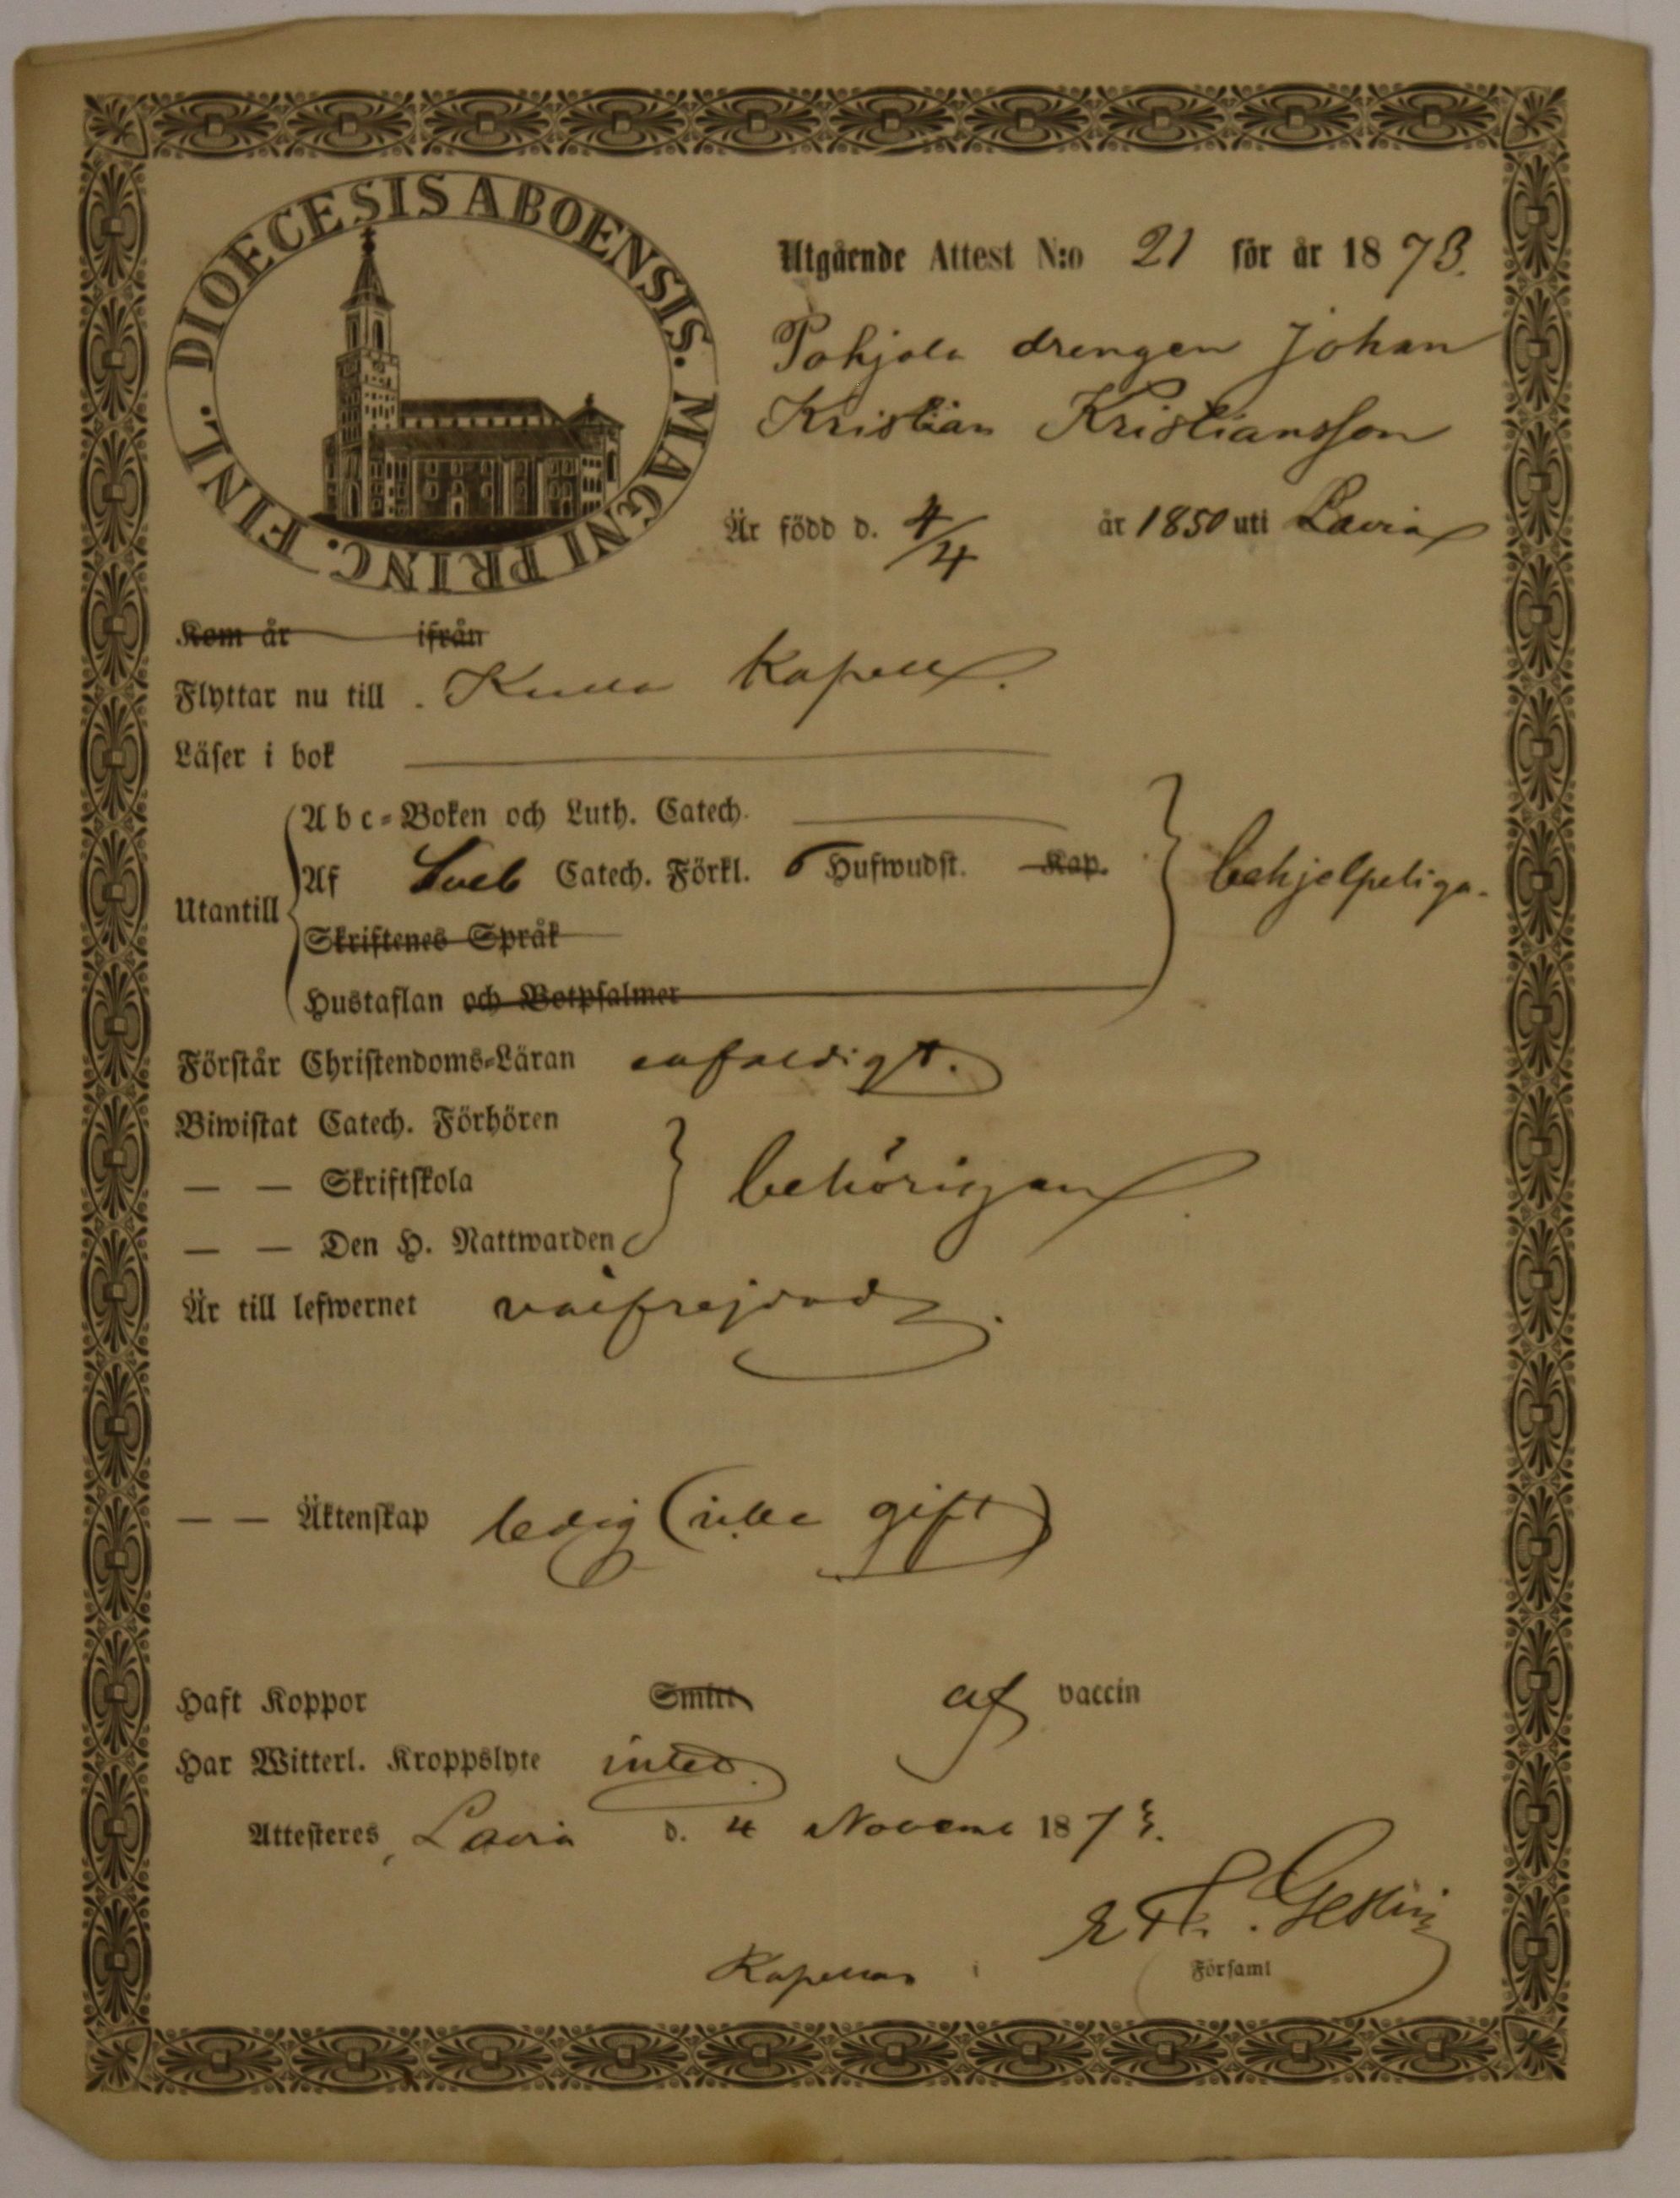 DIOECESIS ABOENSIS. MAGNI PRINC. FINL.
Utgående Attest N:o 21 för år 1873.
Pohjola drengen Johan
Kristian Kristiansson
Är född d. 4/4 år 1850 uti Lavia
Kom år ifrån
Flyttar nu till . Kulla Kapell.
Läser i bok
Abc-Boken och Luth. Catech.
Utantill
Af Sveb Catech. Förkl. 6 Hufwudst. Kap.
behjelpeliga.
Skriftenes Språk
Hustaflan och Botpsalmer
Förstår Christendoms-Läran enfaldigt.
Biwistat Catech. Förhören
— — Skriftskola behörigen
— — Den H. Nattwarden
Är till lefwernet välfrejdad.
— — Äktenskap ledig (icke gift)
Haft Koppor Smitt af vaccin
Har Witterl. Kroppslyte intet.
Attesteres, Lavia d. 4 Novemb 1873.
Kapellan i Församl